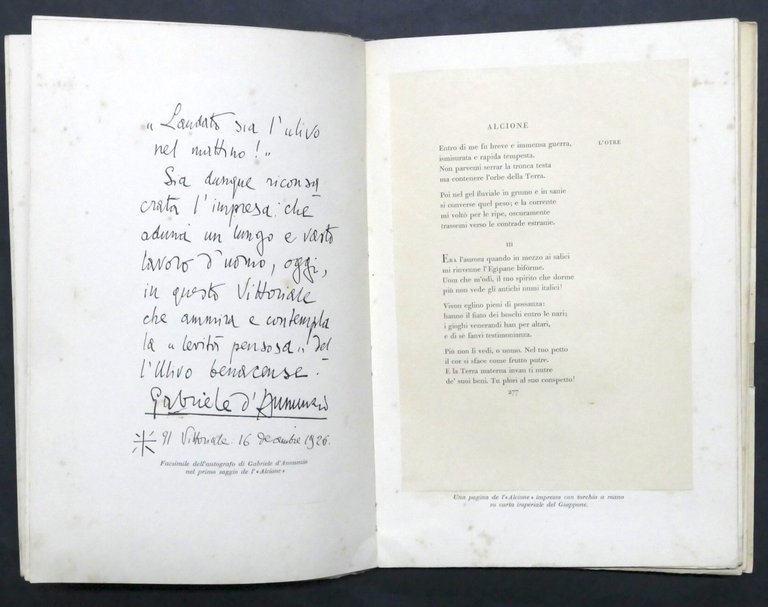 "Laudato sia l'ulivo
nel mattino!"
Sia dunque riconsa
crata l'impresa che
aduna un lungo e vasto
lavoro d'uomo, oggi,
in questo Vittoriale
che ammira e contempla
la "levità pensosa" del
l'Ulivo benacense.
Gabriele d'Annunzio
Il Vittoriale: 16 decembre 1926.
Facsimile dell'autografo di Gabriele d'Annunzio
nel primo saggio de l'«Alcione»
ALCIONE
Entro di me fu breve e immensa guerra, L'OTRE
ismisurata e rapida tempesta.
Non parvemi serrar la tronca testa
ma contenere l'orbe della Terra.
Poi nel gel fluviale in grumo e in sanie
si converse quel peso; e la corrente
mi voltò per le ripe, oscuramente
trassemi verso le contrade estranie.
III
Era l'aurora quando in mezzo ai salici
mi rinvenne l'Egipane biforme.
Uom che m'odi, il tuo spirito che dorme
più non vede gli antichi numi italici!
Vivon eglino pieni di possanza:
hanno il fiato dei boschi entro le nari;
i gioghi venerandi han per altari,
e di sé fanvi testimonianza.
Più non li vedi, o uomo. Nel tuo petto
il cor si sface come frutto putre.
E la Terra materna invan ti nutre
de' suoi beni. Tu plori al suo cospetto!
277
Una pagina de l'«Alcione» impressa con torchio a mano
su carta imperiale del Giappone.